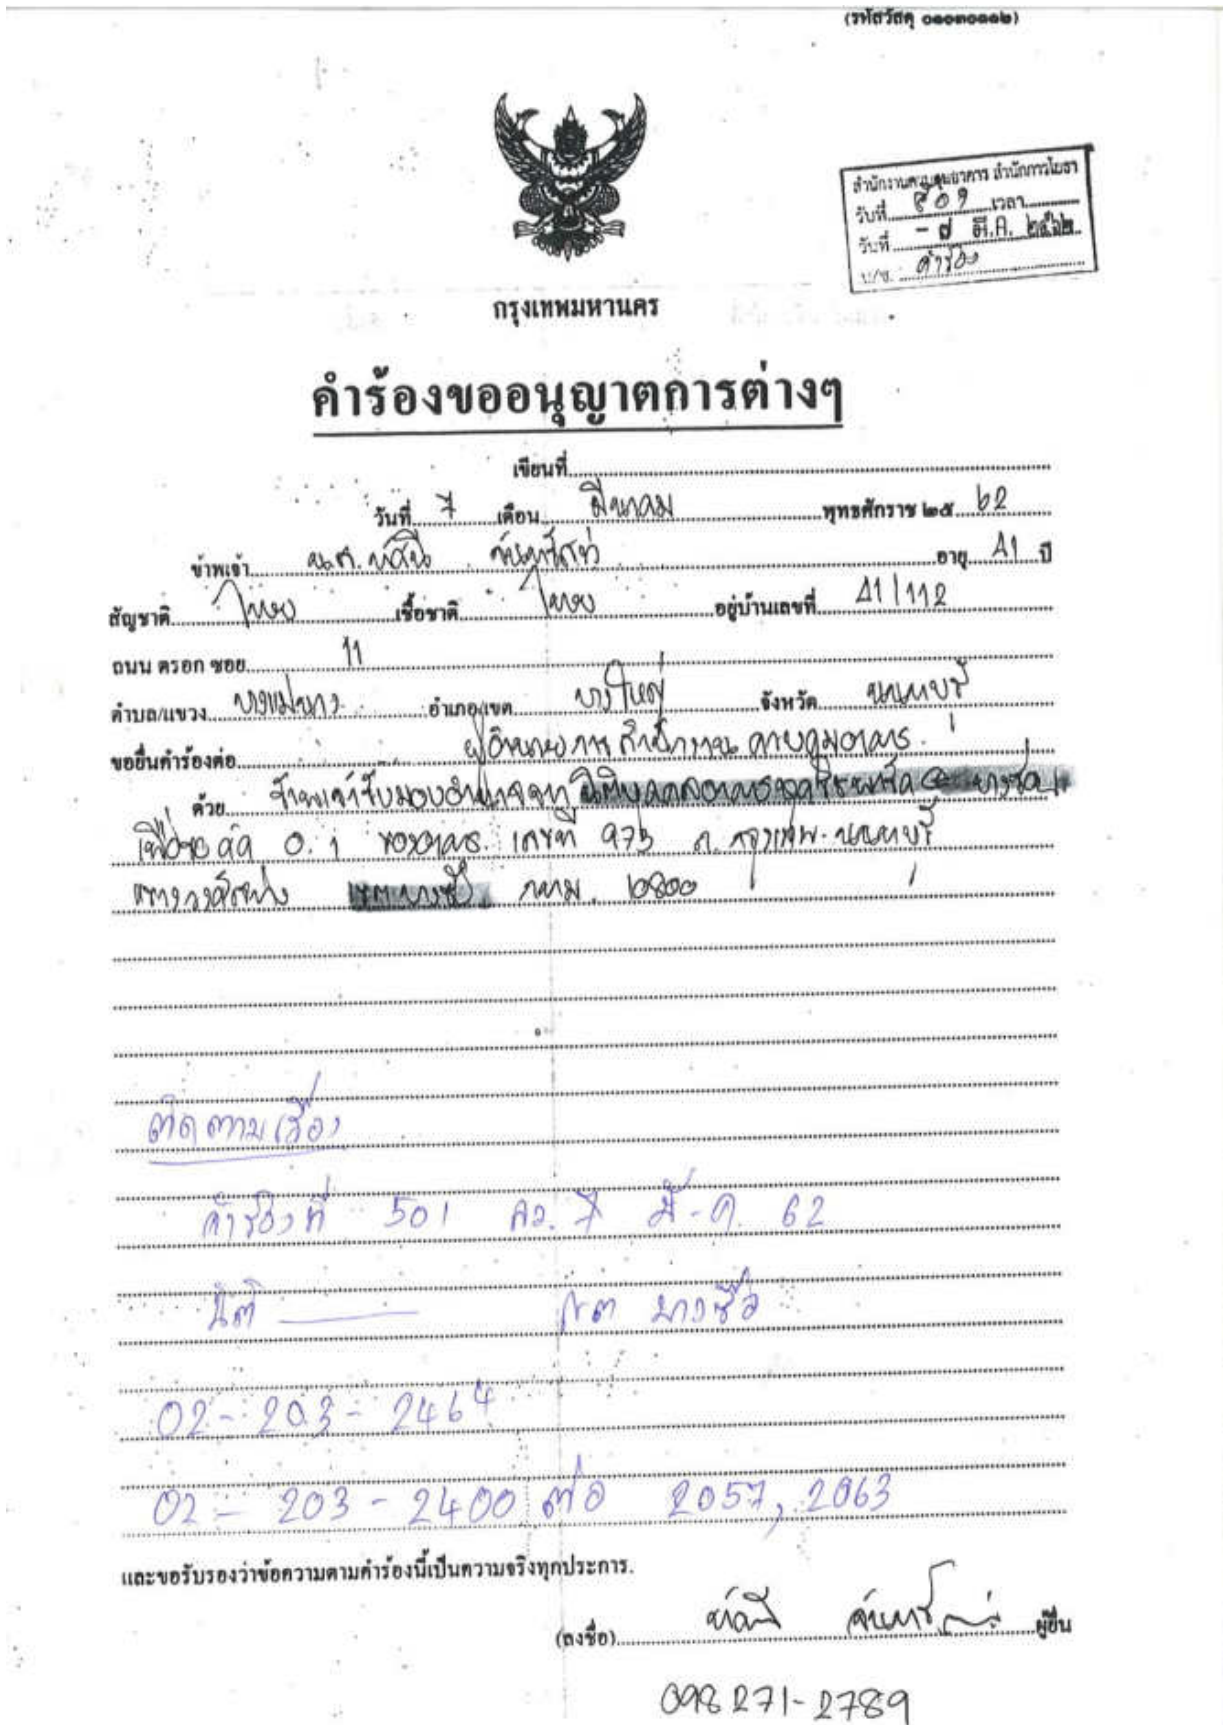 (รหัสวัสดุ ๐๑๐๓๐๑๑๒)
สำนักงานควบคุมอาคาร สำนักการโยธา
วันที่ ๕๐๑ เวลา
วันที่ - ๗ มี.ค. ๒๕๖๒
น/ช. คำร้อง
กรุงเทพมหานคร
คำร้องขออนุญาตการต่างๆ
เขียนที่
วันที่ 7 เดือน มีนาคม พุทธศักราช ๒๕ 62
ข้าพเจ้า น.ส. อายุ 41 ปี
สัญชาติ ไทย เชื้อชาติ ไทย อยู่บ้านเลขที่ 41/112
ถนน ตรอก ซอย 11
ตำบล/แขวง บางแม่นาง อำเภอ/เขต บางใหญ่ จังหวัด นนทบุรี
ขอยื่นคำร้องต่อ ผู้อำนวยการ สำนักงาน ควบคุมอาคาร
ด้วย ข้าพเจ้ารับมอบอำนาจจาก นิติบุคคลอาคารชุด
เพื่อขอคัด อ. 1 ของอาคาร เลขที่ 973 ถ. กรุงเทพ-นนทบุรี
แขวงวงศ์สว่าง เขตบางซื่อ กทม. 10800
ติดตามเรื่อง
คำร้องที่ 501 ลว. 7 มี.ค. 62
นิติ เขต บางซื่อ
02-203-2464
02-203-2400 ต่อ 2057, 2063
และขอรับรองว่าข้อความตามคำร้องนี้เป็นความจริงทุกประการ.
(ลงชื่อ) ผู้ยื่น
098 271-2789